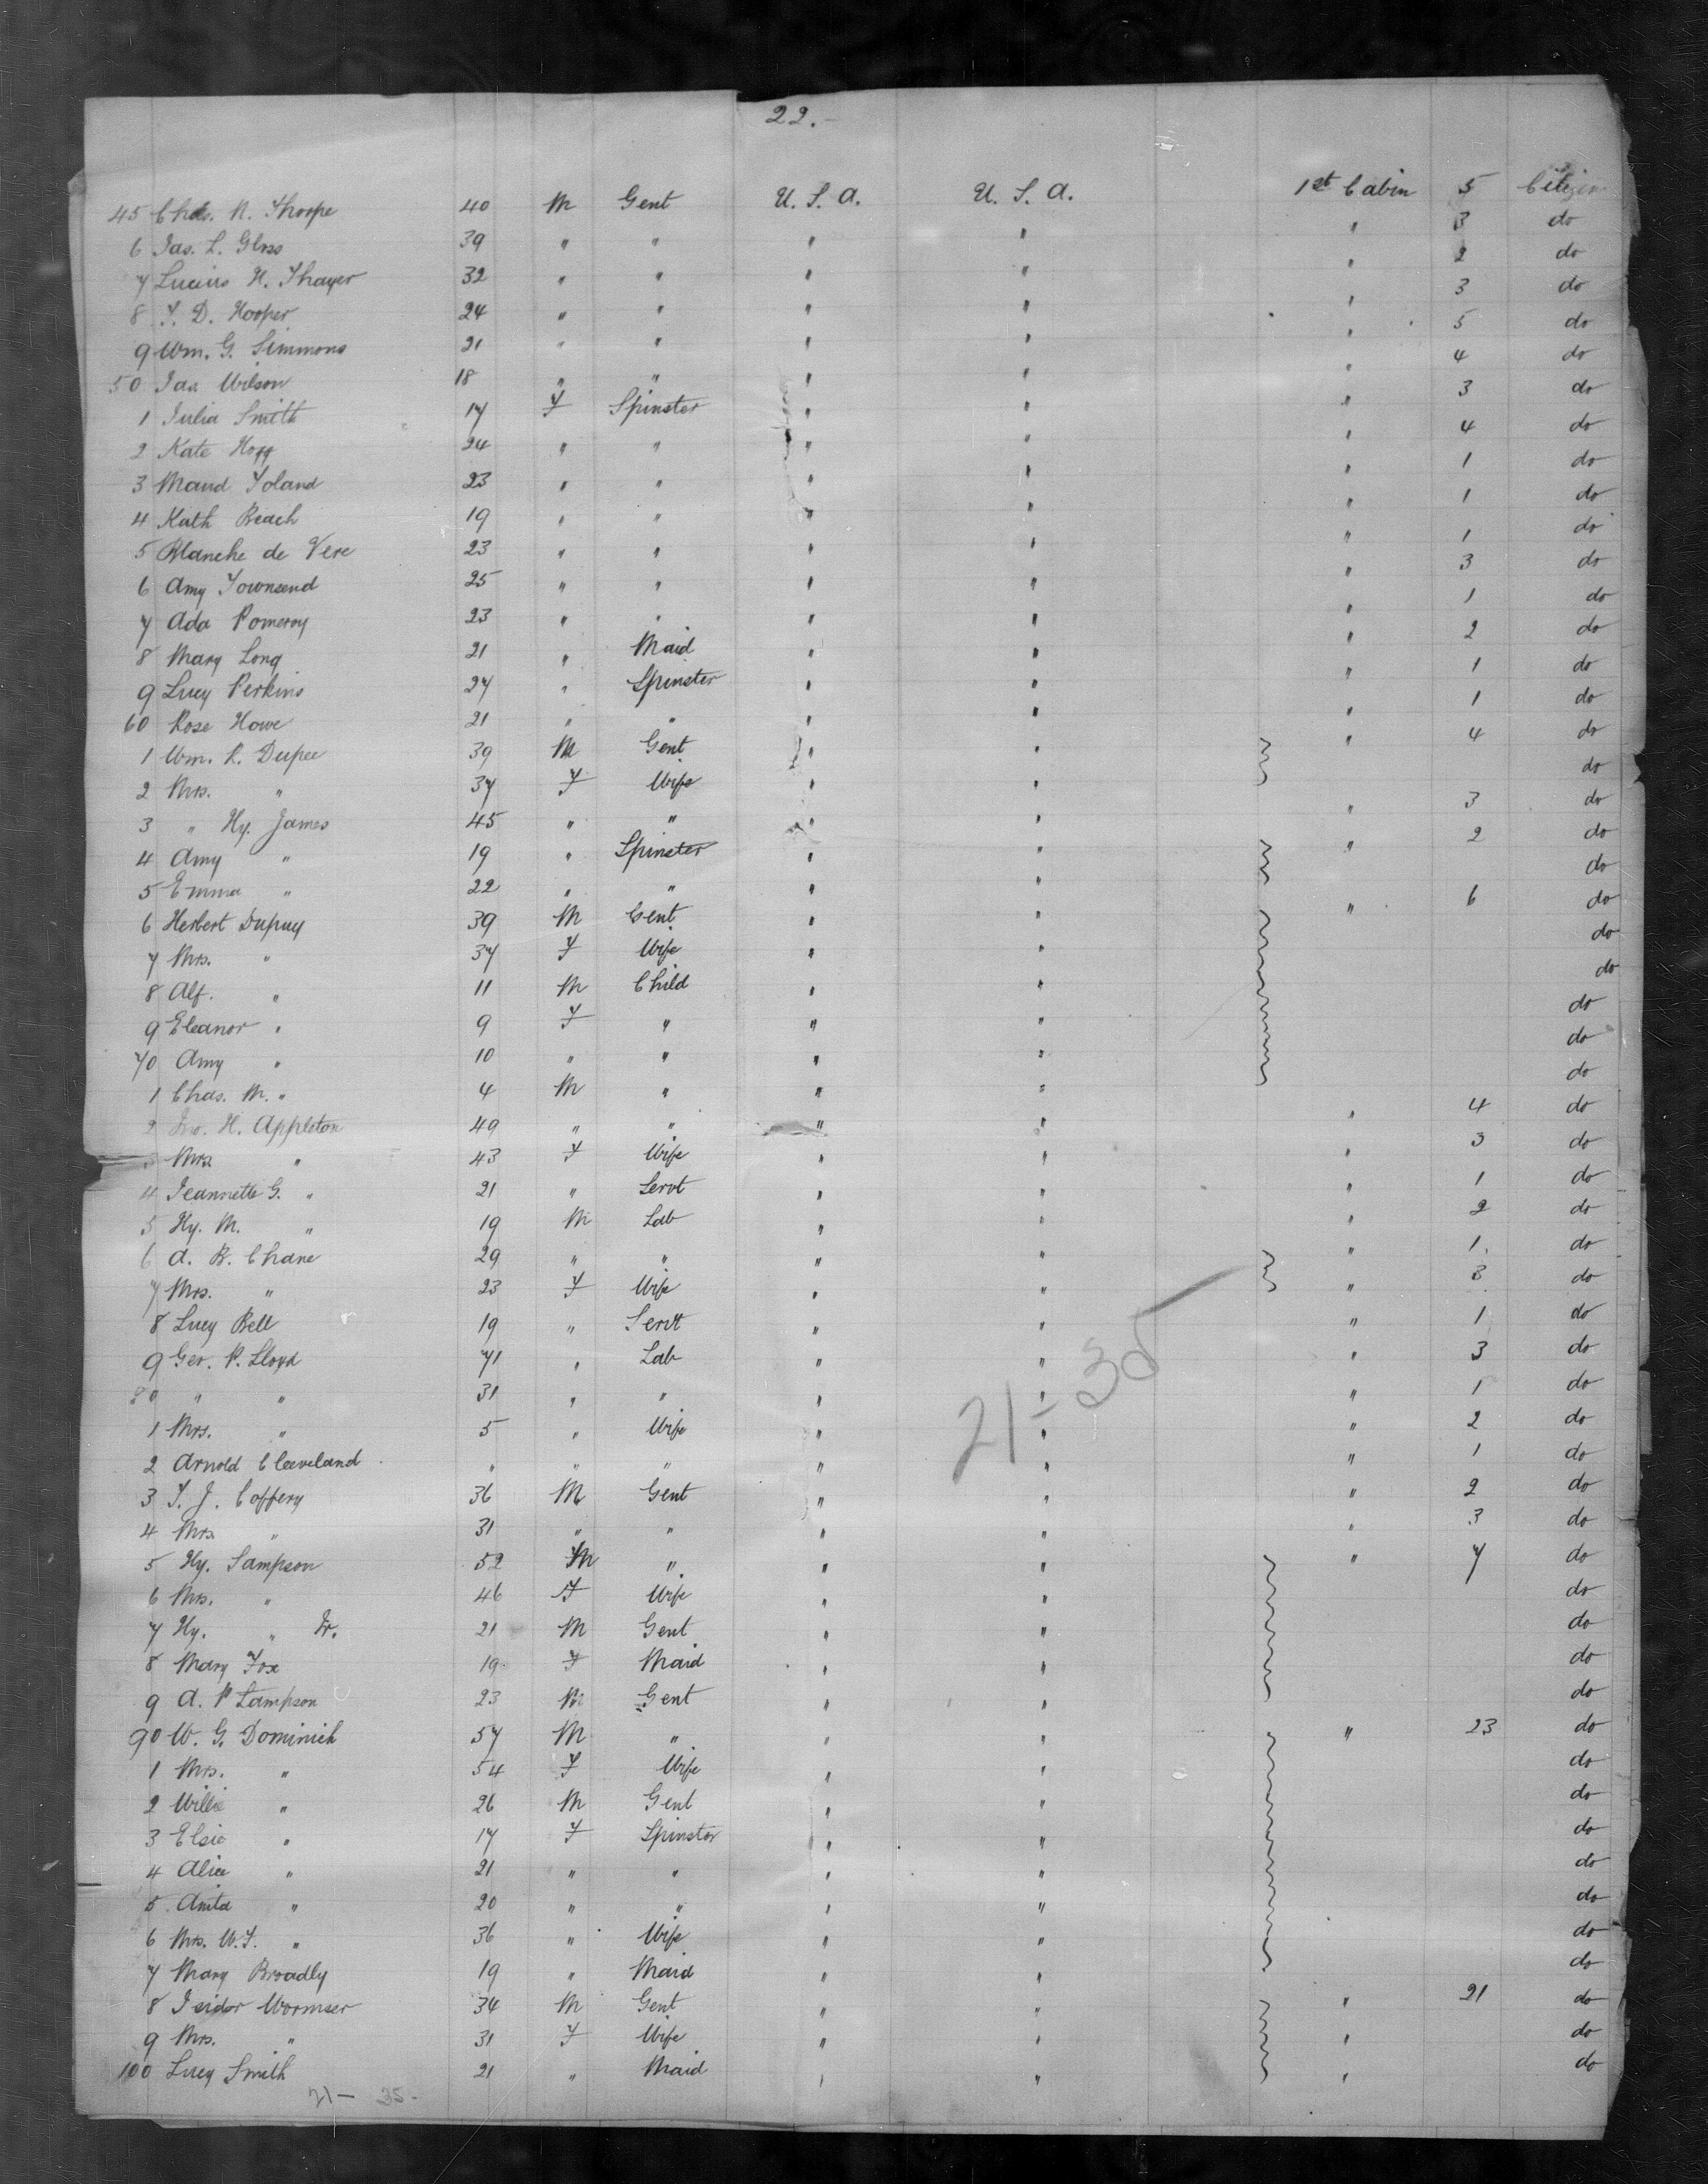 22.
45 Chas. N. Thorpe 40 M Gent U. S. A. U. S. A. 1st Cabin 5 Citizen
6 Jas. L. 39 " " " " " 3 do
7 Lucius H. Thayer 32 " " " " " 2 do
8 T. D. Hooper 24 " " " " " 3 do
9 Wm. G. Simmons 21 " " " " " 5 do
50 Jas Wilson 18 " " " " " 4 do
1 Julia Smith 17 F Spinster " " " 3 do
2 Kate Hogg 24 " " " " " 4 do
3 Maud Toland 23 " " " " " 1 do
4 Kath Beach 19 " " " " " 1 do
5 Blanche de Vere 23 " " " " " 1 do
6 Amy Townsend 25 " " " " " 3 do
7 Ada Pomeroy 23 " " " " " 1 do
8 Mary Long 21 " Maid " " " 2 do
9 Lucy Perkins 27 " Spinster " " " 1 do
60 Rose Howe 21 " " " " " 1 do
1 Wm. R. Dupee 39 M Gent " " " 4 do
2 Mrs. " 37 F Wife " " do
3 " Hy. James 45 " " " " " 3 do
4 Amy " 19 " Spinster " " " 2 do
5 Emma " 22 " " " " do
6 Herbert Dupuy 39 M Gent " " " 6 do
7 Mrs. " 37 F Wife " " do
8 Alf. " 11 M Child " " do
9 Eleanor " 9 F " " " do
70 Amy " 10 " " " " do
1 Chas. M. " 4 M " " " do
2 Jno. H. Appleton 49 " " " " " 4 do
3 Mrs. " 43 F Wife " " " 3 do
4 Jeannette G. " 21 " Servt " " " 1 do
5 Hy. M. " 19 M Lab " " " 2 do
6 A. B. Chane 29 " " " " " 1 do
7 Mrs. " 23 F Wife " " " 3 do
8 Lucy Bell 19 " Servt " " " 1 do
9 Geo. P. Lloyd 71 " Lab " " " 3 do
80 " " 31 " " " " " 1 do
1 Mrs. " 5 " Wife " " " 2 do
2 Arnold Cleeveland " " " " " " 1 do
3 T. J. Coffery 36 M Gent " " " 2 do
4 Mrs. " 31 " " " " " 3 do
5 Hy. Sampson 52 M " " " " 7 do
6 Mrs. " 46 F Wife " " do
7 Hy. " Jr. 21 M Gent " " do
8 Mary Fox 19 F Maid " " do
9 A. P. Sampson 23 M Gent " " do
90 W. G. Dominich 57 M " " " " 23 do
1 Mrs. " 54 F Wife " " do
2 Willie " 26 M Gent " " do
3 Elsie " 17 F Spinster " " do
4 Alice " 21 " " " " do
5 Anita " 20 " " " " do
6 Mrs. W. T. " 36 " Wife " " do
7 Mary Broadly 19 " Maid " " do
8 Isidor Wormser 34 M Gent " " " 21 do
9 Mrs. " 31 F Wife " " " do
100 Lucy Smith 21 " Maid " " " do
21-35
21- 35-